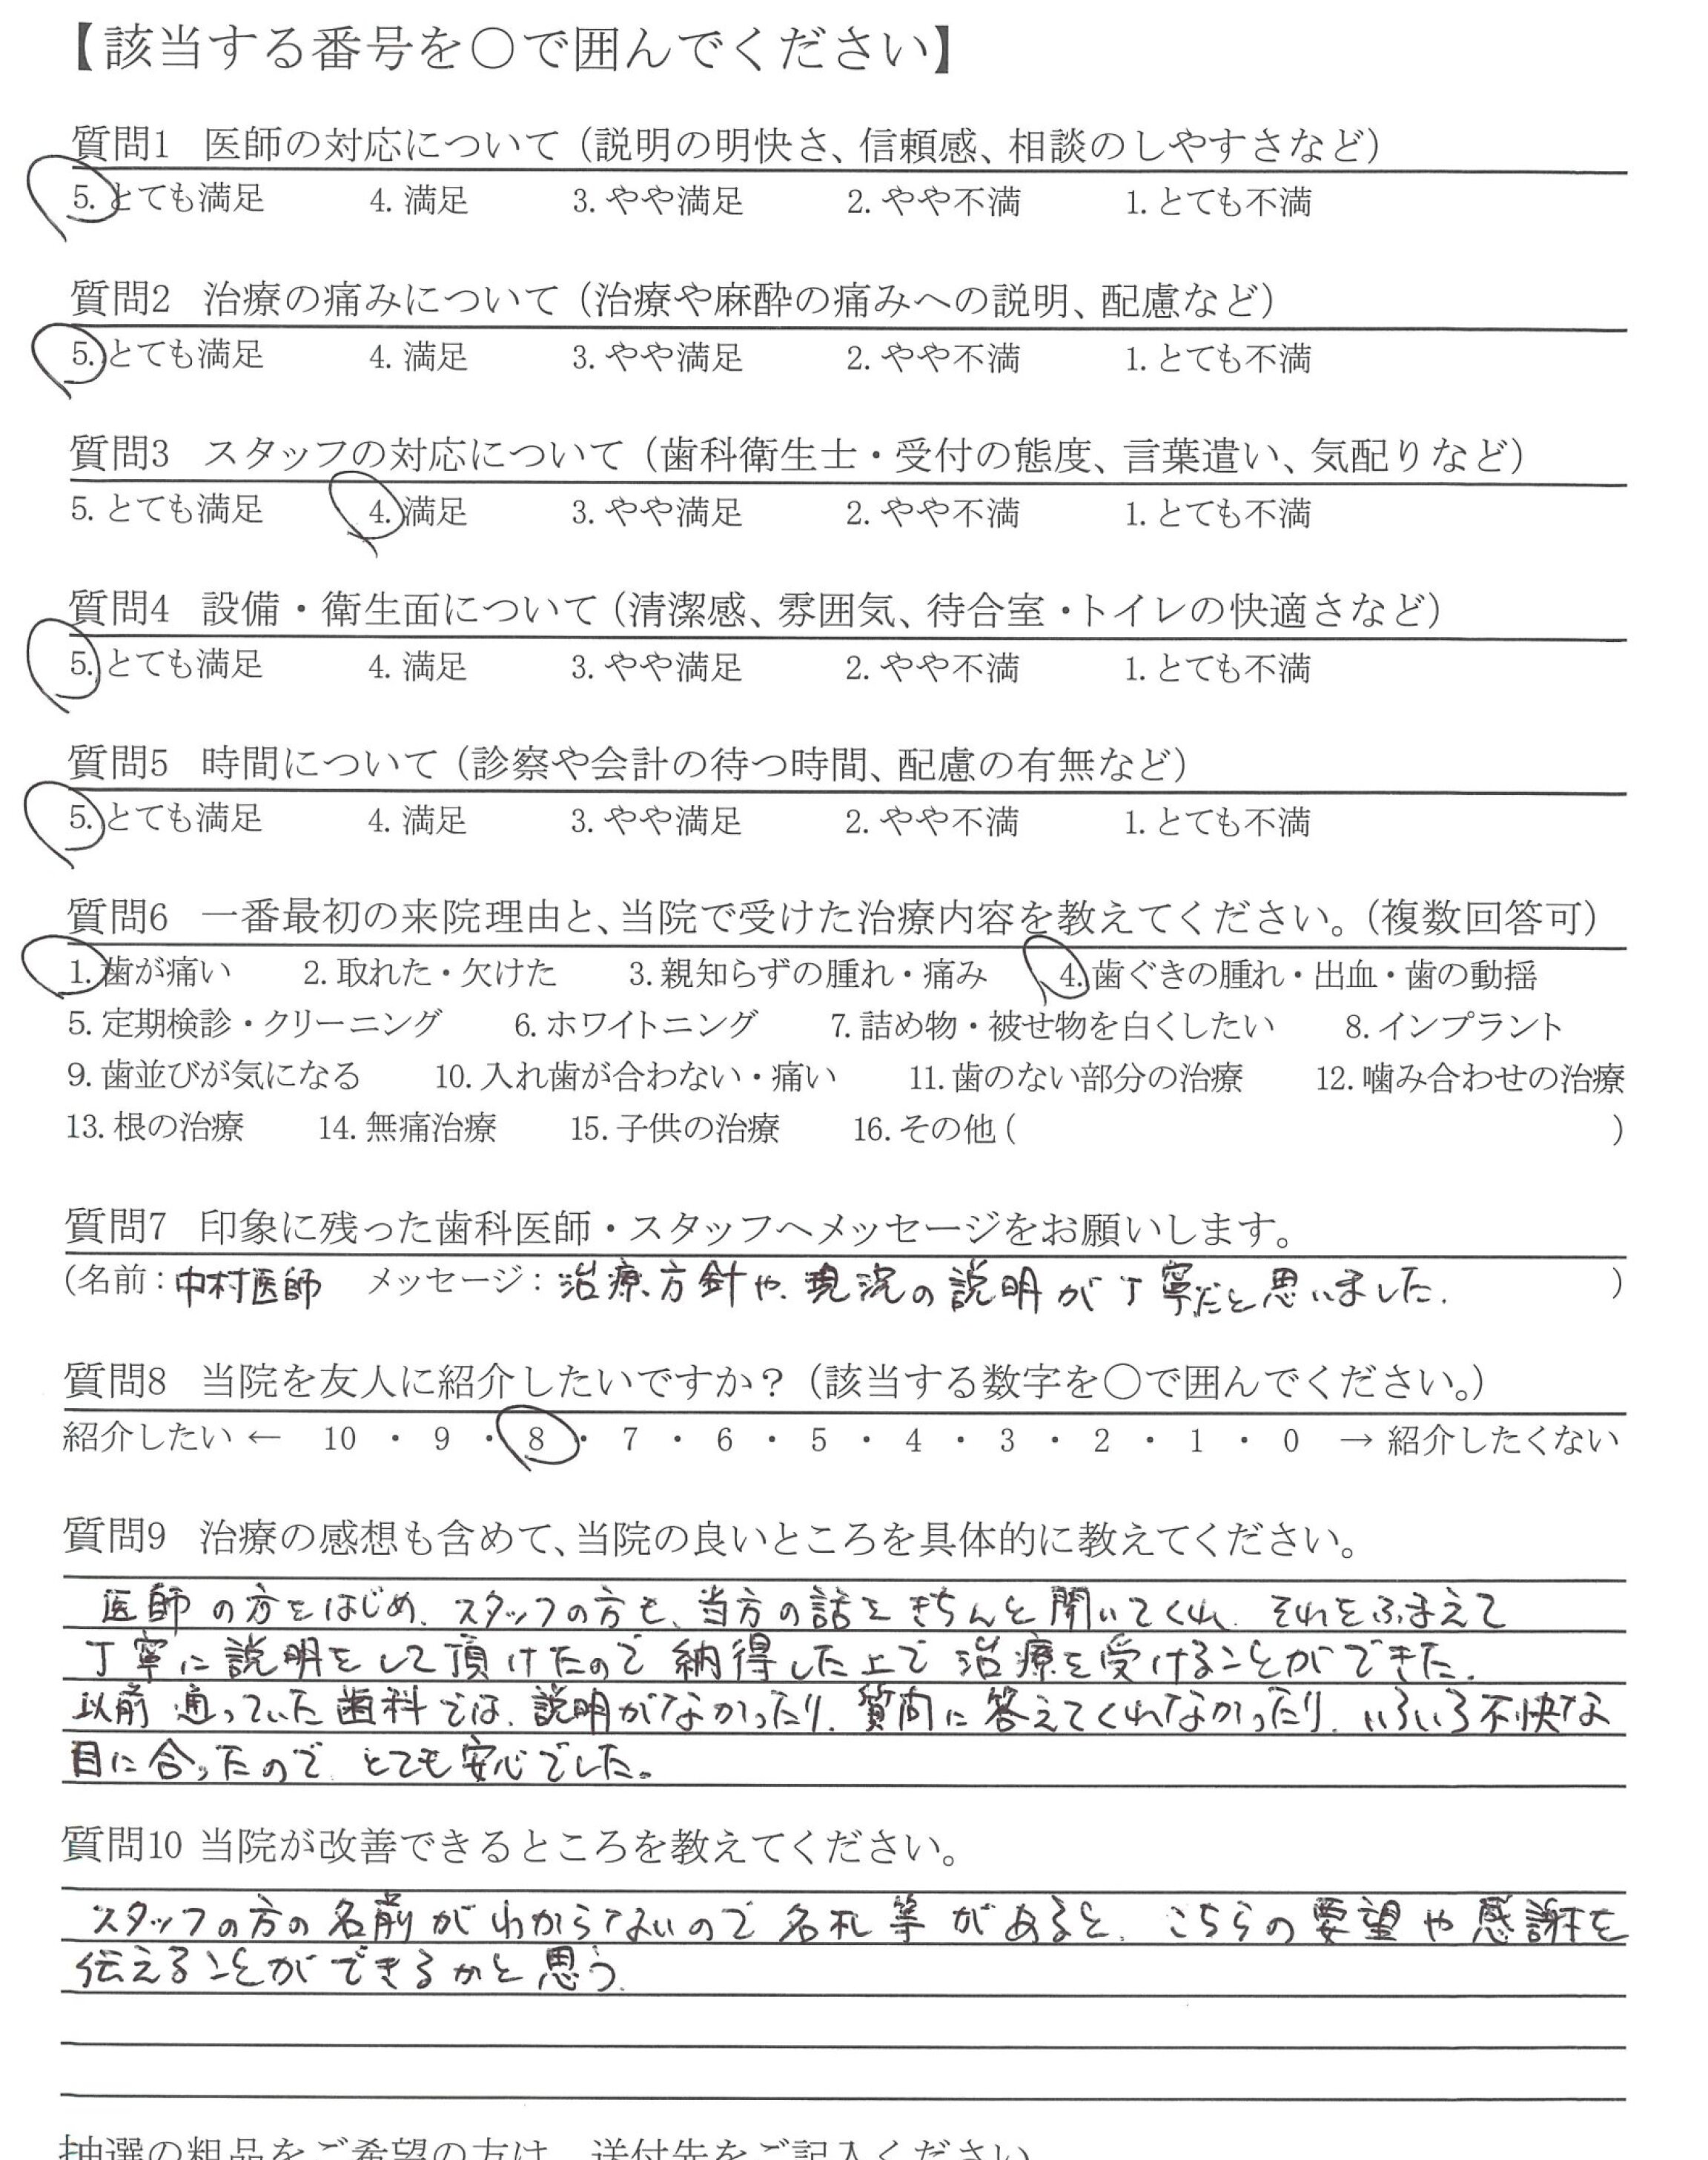 【該当する番号を〇で囲んでください】
質問1 医師の対応について（説明の明快さ、信頼感、相談のしやすさなど）
5. とても満足 4. 満足 3. やや満足 2. やや不満 1. とても不満
質問2 治療の痛みについて（治療や麻酔の痛みへの説明、配慮など）
5. とても満足 4. 満足 3. やや満足 2. やや不満 1. とても不満
質問3 スタッフの対応について（歯科衛生士・受付の態度、言葉遣い、気配りなど）
5. とても満足 4. 満足 3. やや満足 2. やや不満 1. とても不満
質問4 設備・衛生面について（清潔感、雰囲気、待合室・トイレの快適さなど）
5. とても満足 4. 満足 3. やや満足 2. やや不満 1. とても不満
質問5 時間について（診察や会計の待つ時間、配慮の有無など）
5. とても満足 4. 満足 3. やや満足 2. やや不満 1. とても不満
質問6 一番最初の来院理由と、当院で受けた治療内容を教えてください。（複数回答可）
1. 歯が痛い 2. 取れた・欠けた 3. 親知らずの腫れ・痛み 4. 歯ぐきの腫れ・出血・歯の動揺
5. 定期検診・クリーニング 6. ホワイトニング 7. 詰め物・被せ物を白くしたい 8. インプラント
9. 歯並びが気になる 10. 入れ歯が合わない・痛い 11. 歯のない部分の治療 12. 噛み合わせの治療
13. 根の治療 14. 無痛治療 15. 子供の治療 16. その他（ ）
質問7 印象に残った歯科医師・スタッフへメッセージをお願いします。
（名前：中村医師 メッセージ：治療方針や、現況の説明が丁寧だと思いました. ）
質問8 当院を友人に紹介したいですか？（該当する数字を〇で囲んでください。）
紹介したい ← 10 ・ 9 ・ 8 ・ 7 ・ 6 ・ 5 ・ 4 ・ 3 ・ 2 ・ 1 ・ 0 → 紹介したくない
質問9 治療の感想も含めて、当院の良いところを具体的に教えてください。
医師の方をはじめ、スタッフの方も、当方の話をきちんと聞いてくれ、それをふまえて
丁寧に説明をして頂けたので納得した上で治療を受けることができた.
以前通っていた歯科では、説明がなかったり、質問に答えてくれなかったり、いろいろ不快な
目に合ったので、とても安心でした。
質問10 当院が改善できるところを教えてください。
スタッフの方の名前がわからないので名札等があると、こちらの要望や感謝を
伝えることができるかと思う.
抽選の粗品をご希望の方は、送付先をご記入ください